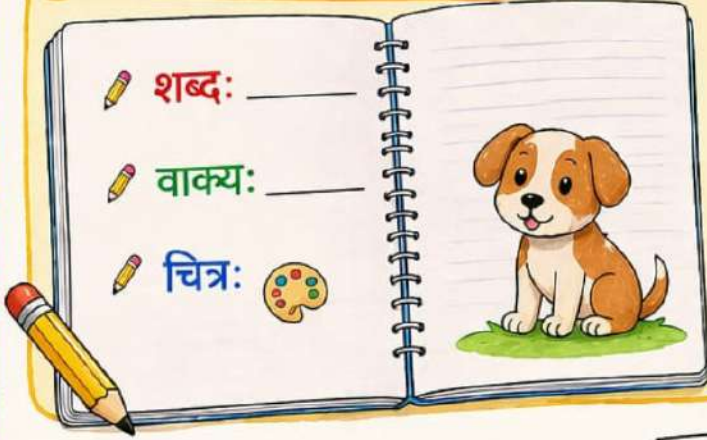 शब्द: ______
वाक्य: ______
चित्र: